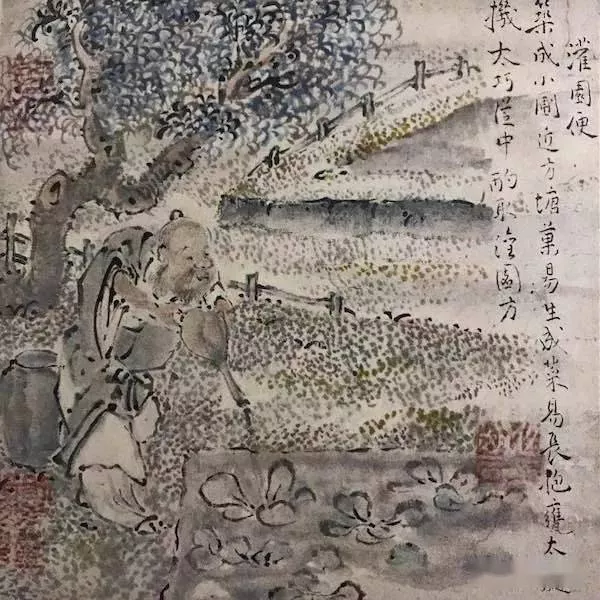 灌園便
築成小圃近方塘菓易生成菜易長抱甕太
機太巧從中酌取灌園方